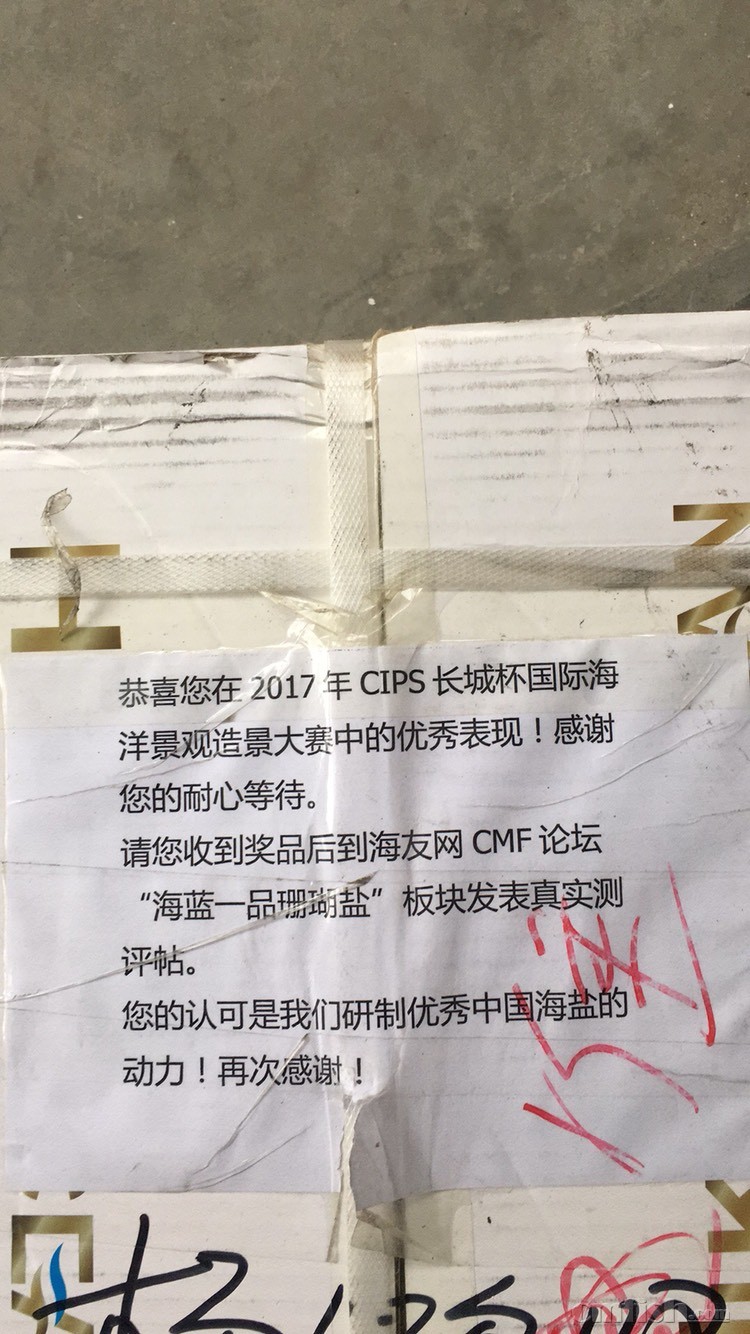 恭喜您在 2017 年 CIPS 长城杯国际海
洋景观造景大赛中的优秀表现！感谢
您的耐心等待。
请您收到奖品后到海友网 CMF 论坛
“海蓝一品珊瑚盐”板块发表真实测
评帖。
您的认可是我们研制优秀中国海盐的
动力！再次感谢！